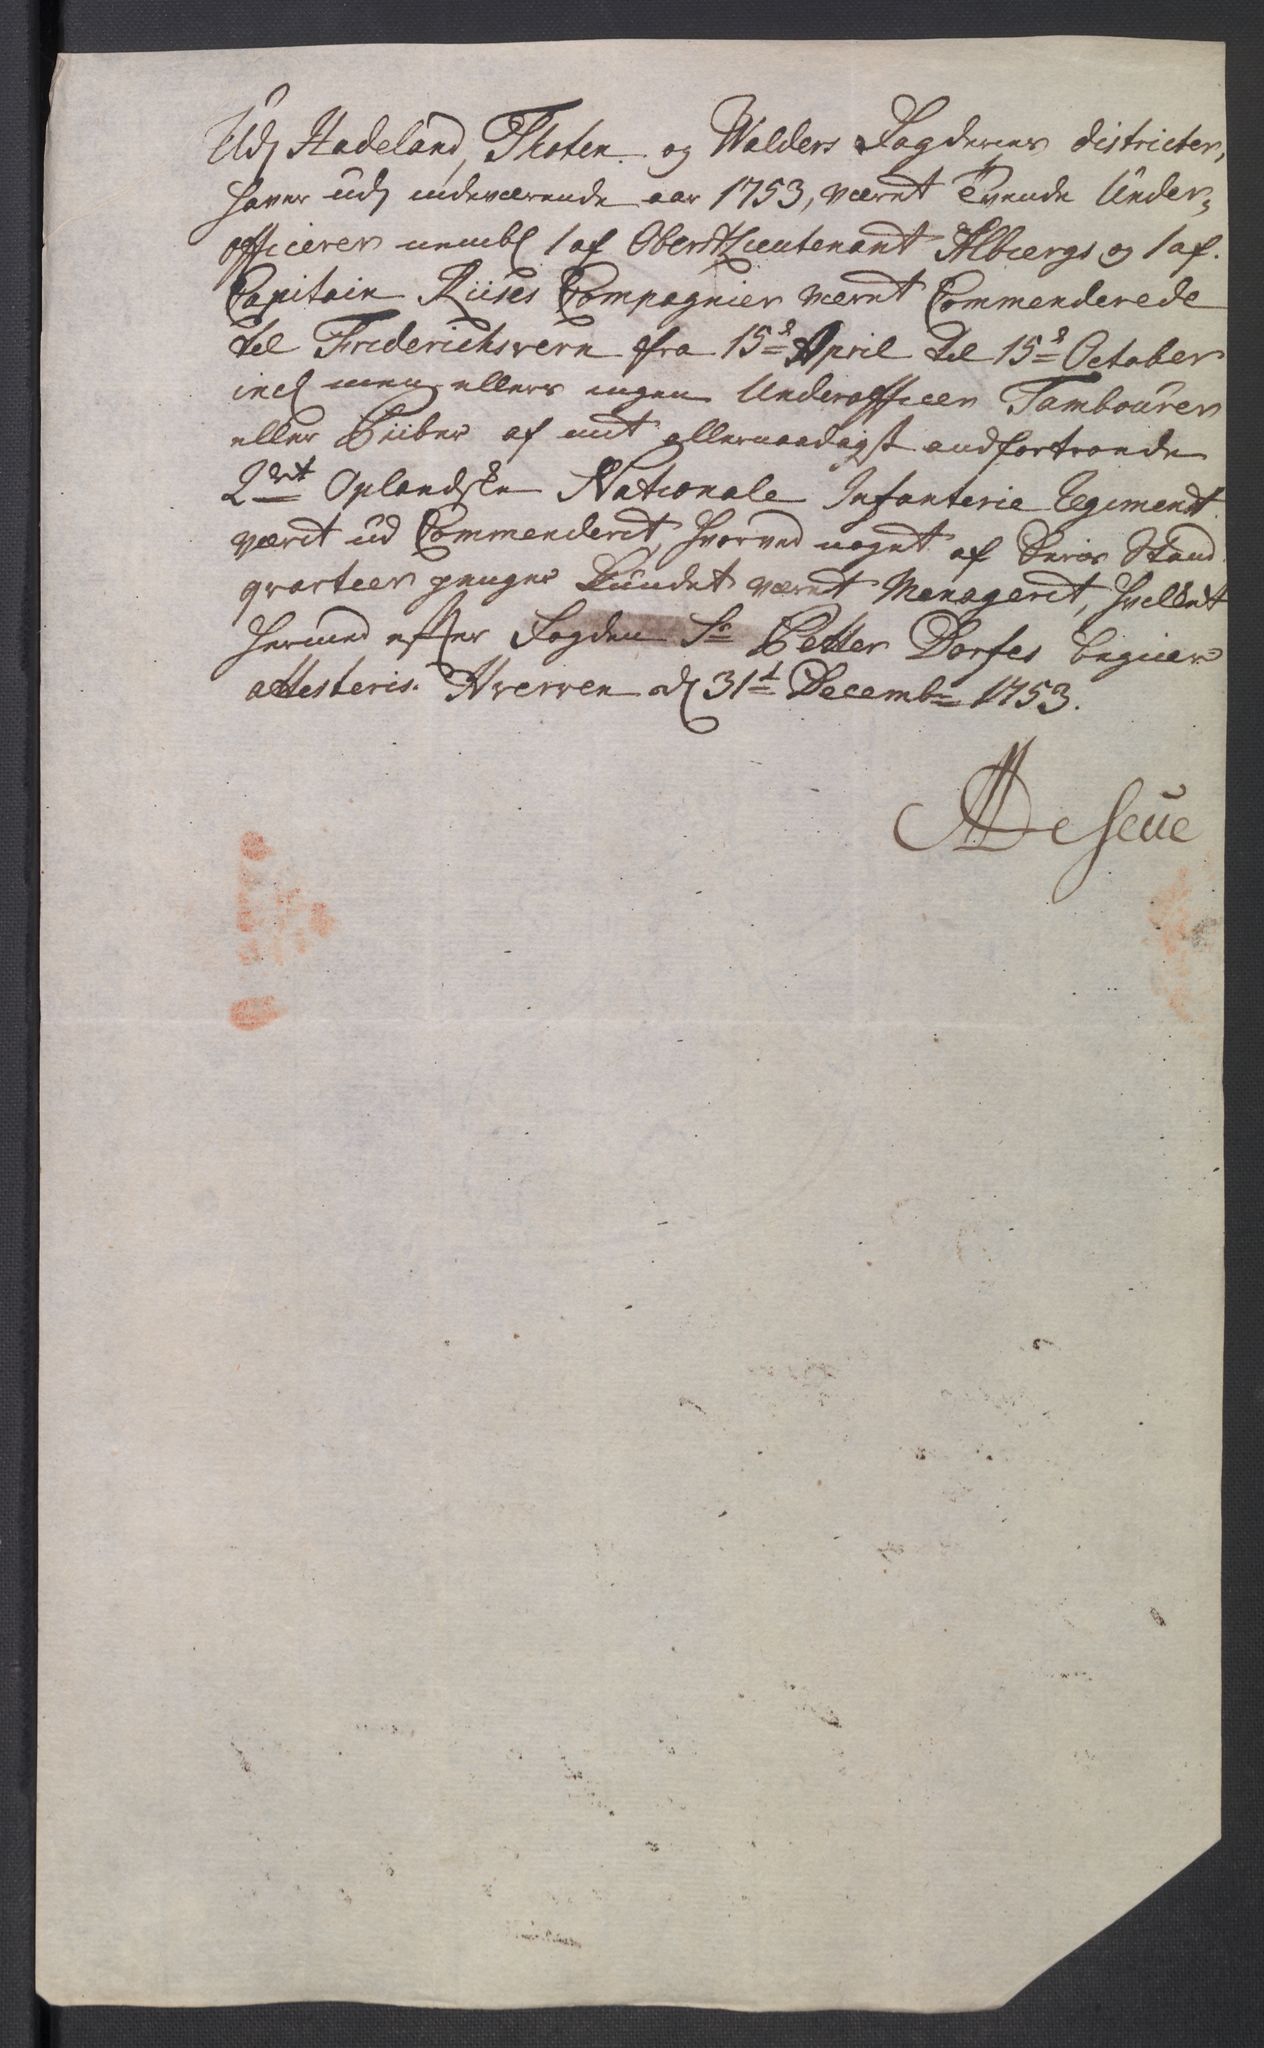 Udj Hadeland, Thoten og Walders Fogderies districter,
haver udj indeværende aar 1753, været tvende Under-
officerer nembl 1 af Oberstlieutenant Ahlbergs og 1 af
Capitain Riises Compagnier været Commenderede
til Friderichsvern fra 15de April til 15de October
incl men ellers ingen Underofficeer Tambourer
eller Piiber af mit allernaadigst andfortroede
2det Oplandske Nationale Infanterie Regiment
værit ud Commenderit, hvorved noget af Deris Stand
qvarteer penger kundet været Menagerit, hvilket
hermed efter Fogden Sr Petter Dorfes begiær
attesteris. Hverven dj 31t Decembr 1753.
De Seue